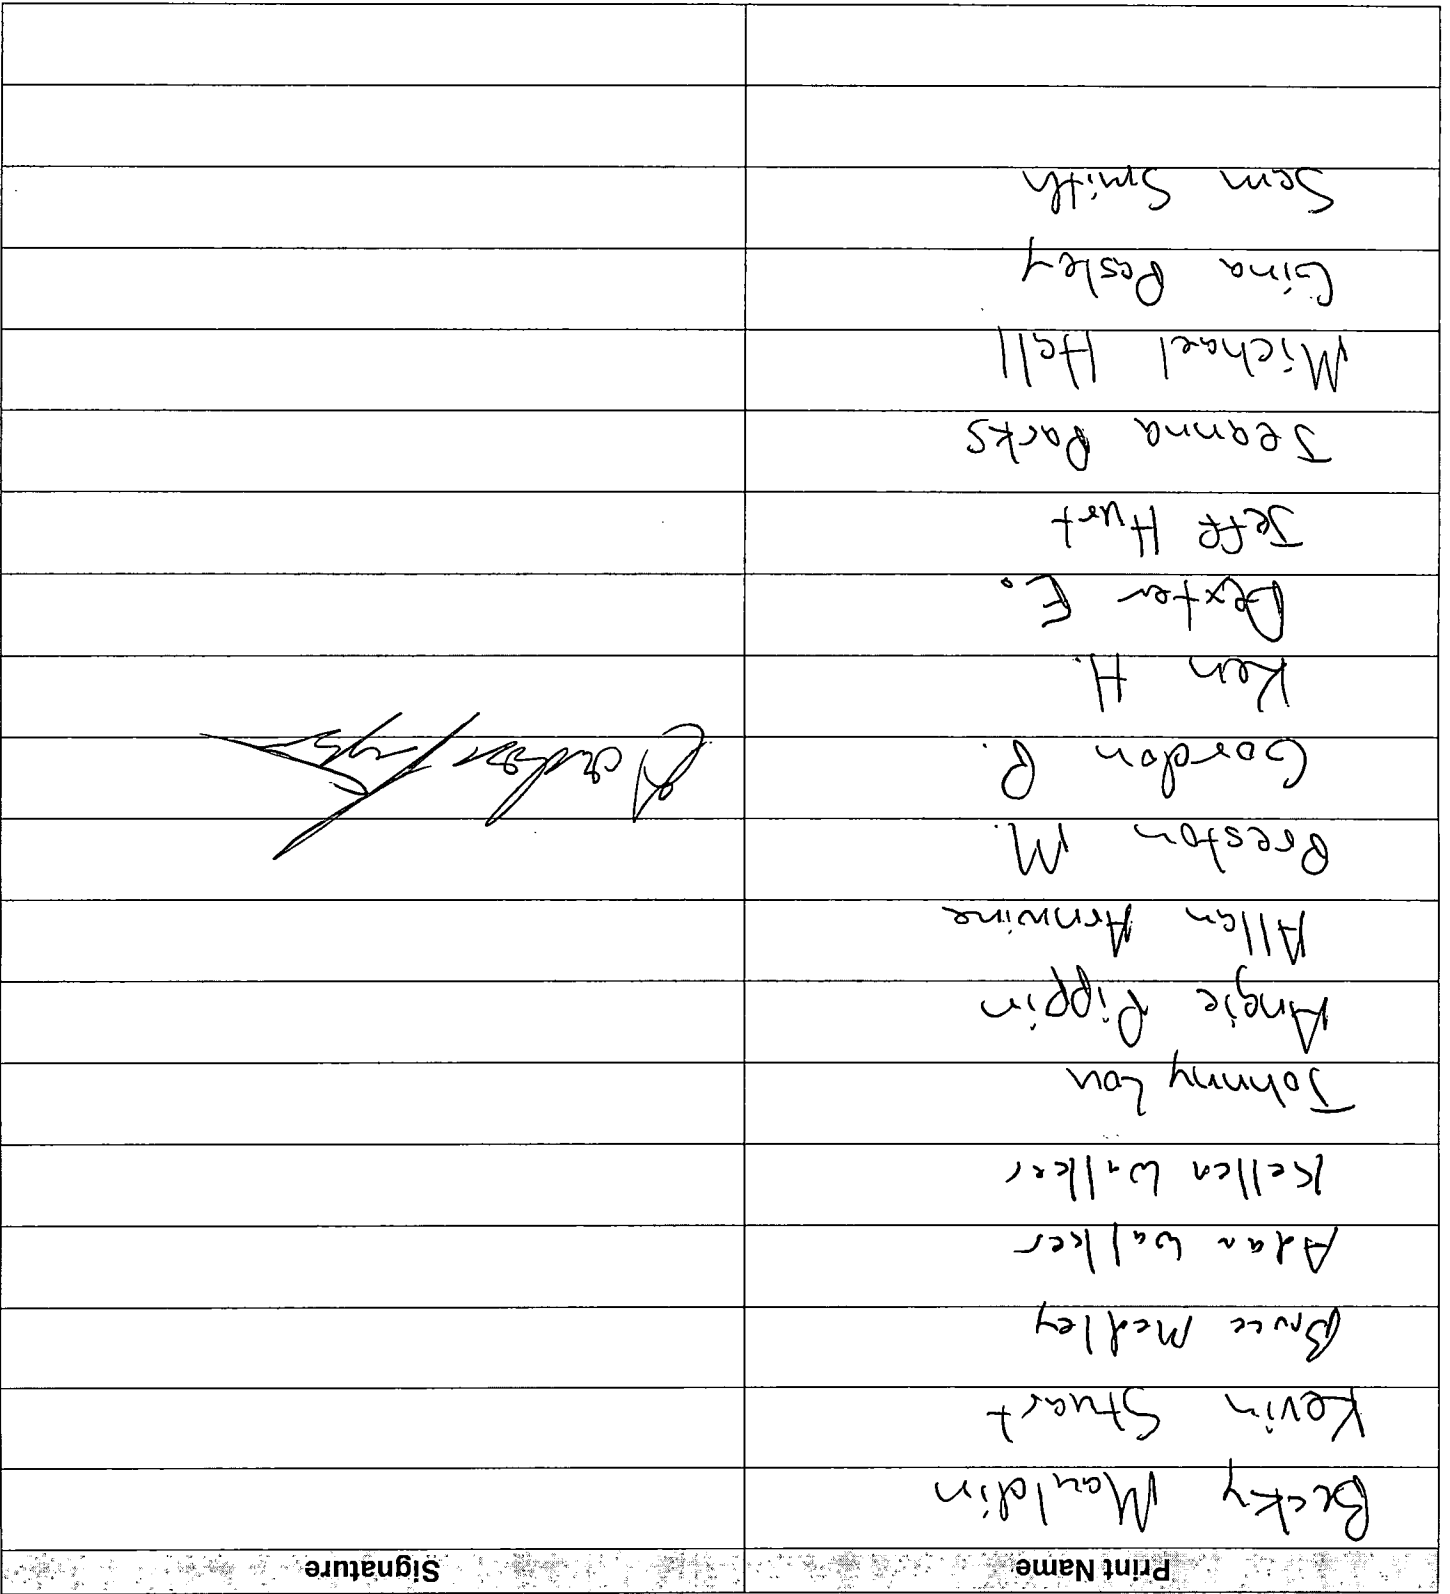 Print Name Signature
Becky Mauldin
Kevin Stuart
Bruce Medley
Adan Walker
Kellen Walker
Johnny Lou
Angie Pippin
Allan Arnwine
Preston M.
Gordon P.
Ken H.
Dexter E.
Jeff Hurt
Jeanna Parks
Michael Hall
Gina Pasley
Sam Smith